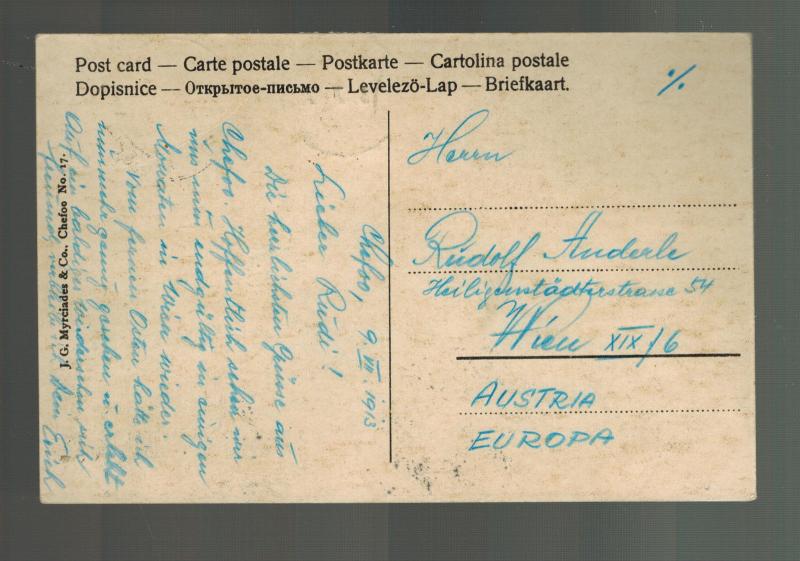 Post card — Carte postale — Postkarte — Cartolina postale
Dopisnice — Открытое-письмо — Levelező-Lap — Briefkaart.
%
Herrn
Rudolf Anderle
Heiligenstädterstrasse 54
Wien XIX/6
AUSTRIA
EUROPA
Chefoo, 9.VII.1913
Lieber Rudi!
Die herzlichsten Grüsse aus
Chefoo. Hoffentlich sehen wir
uns nun endgültig in einigen
Monaten in Wien wieder.
Vom fernen Osten hätte ich
nunmehr genug gesehen u. erlebt
Auf ein baldiges Wiedersehen
freund Dein Erich
J. G. Myrciades & Co., Chefoo No. 17.